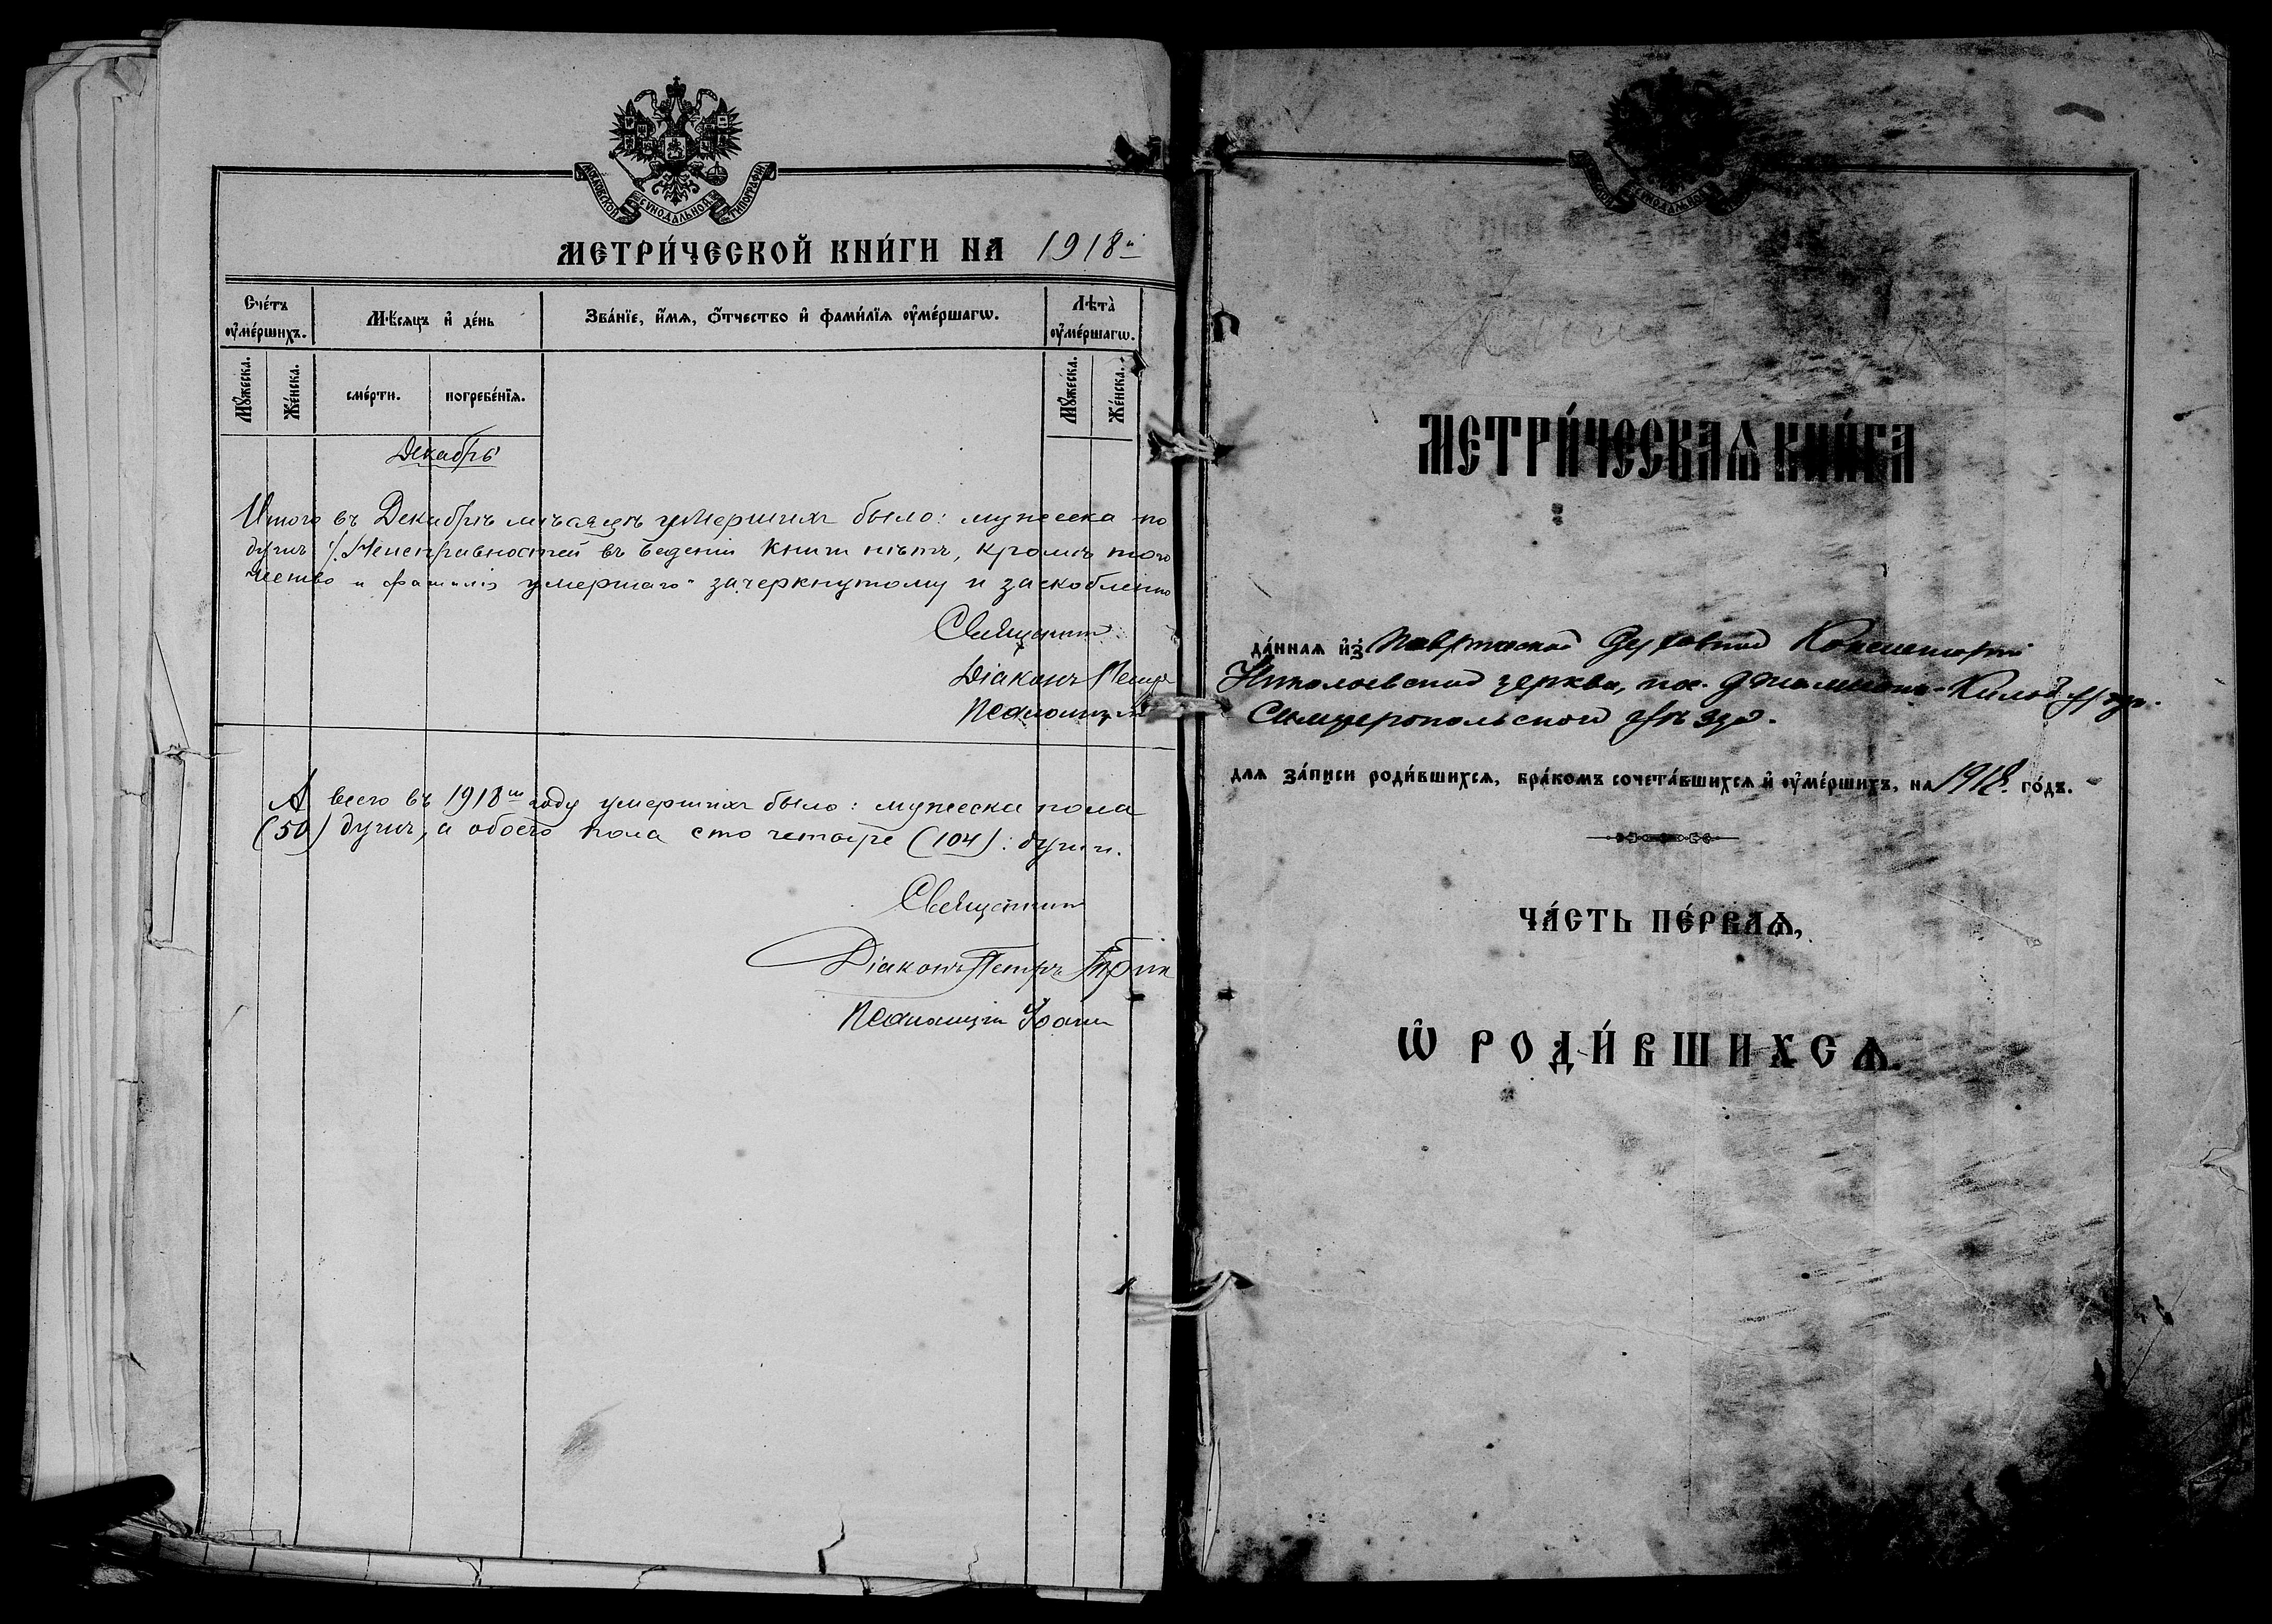 МОСКОВСКОЙ СѴНОДАЛЬНОЙ ТИПОГРАФІИ
МЕТРИ́ЧЕСКОЙ КНИ́ГИ НА 1918й
Сче́тъ оу҆ме́ршихъ.
Мѣ́сяцъ и҆ де́нь
Зва́нїе, и҆́мѧ, ѻ҆́тчество и҆ фами́лїѧ оу҆ме́ршагѡ.
Лѣта̀ оу҆ме́ршагѡ.
Мꙋ́жеска.
Же́нска.
сме́рти.
погребе́нїѧ.
Мꙋ́жеска.
Же́нска.
Декабрь
Итого въ Декабрѣ мѣсяцѣ умершихъ было: мужеска по
душъ /. Неисправностей въ веденіи книги нѣтъ, кромѣ того
чество и фамилія умершаго" зачеркнутому и
Священникъ
Діаконъ Петръ
Псаломщикъ
А всего въ 1918мъ году умершихъ было: мужеска пола
(50) душъ, а обоего пола сто четыре (104): душъ.
Священникъ
Діаконъ Петръ
Псаломщикъ Іоаннъ
СѴНОДАЛЬНОЙ
МЕТРИ́ЧЕСКАѦ КНИ́ГА
да́ннаѧ и҆з̾ Таврической Духовной Консисторіи
Николаевской церкви, пос.
Симферопольскаго уѣзда.
для за́писи роди́вшихсѧ, бра́комъ сочета́вшихсѧ и҆ оу҆ме́ршихъ, на 1918 го́дъ.
ЧА́СТЬ ПЕ́РВАѦ,
Ѡ҆ РОДИ́ВШИХСѦ.